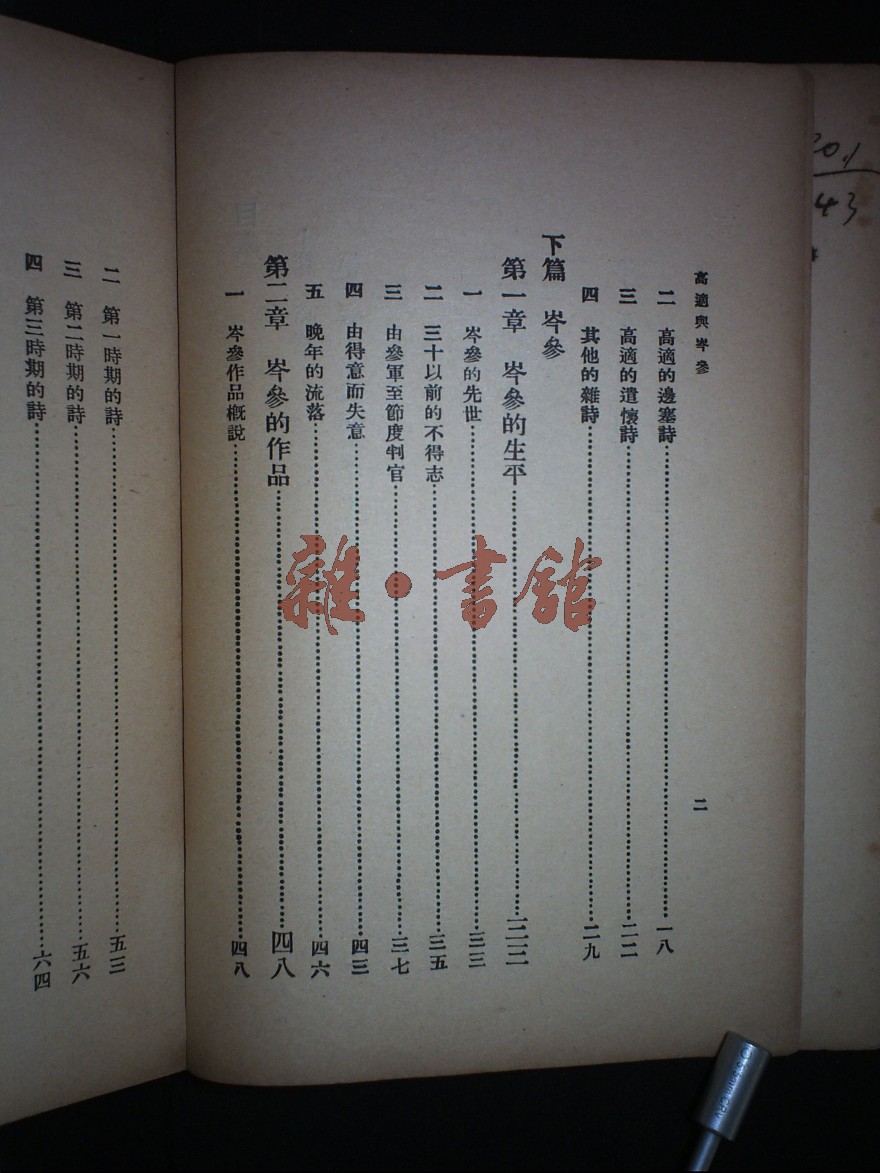 高適與岑參 二
二 高適的邊塞詩……一八
三 高適的遣懷詩……二二
四 其他的雜詩……二九
下篇 岑參
第一章 岑參的生平……三三
一 岑參的先世……三三
二 三十以前的不得志……三五
三 由參軍至節度判官……三七
四 由得意而失意……四三
五 晚年的流落……四六
第二章 岑參的作品……四八
一 岑參作品概說……四八
二 第一時期的詩……五三
三 第二時期的詩……五六
四 第三時期的詩……六四
雜·書館
43